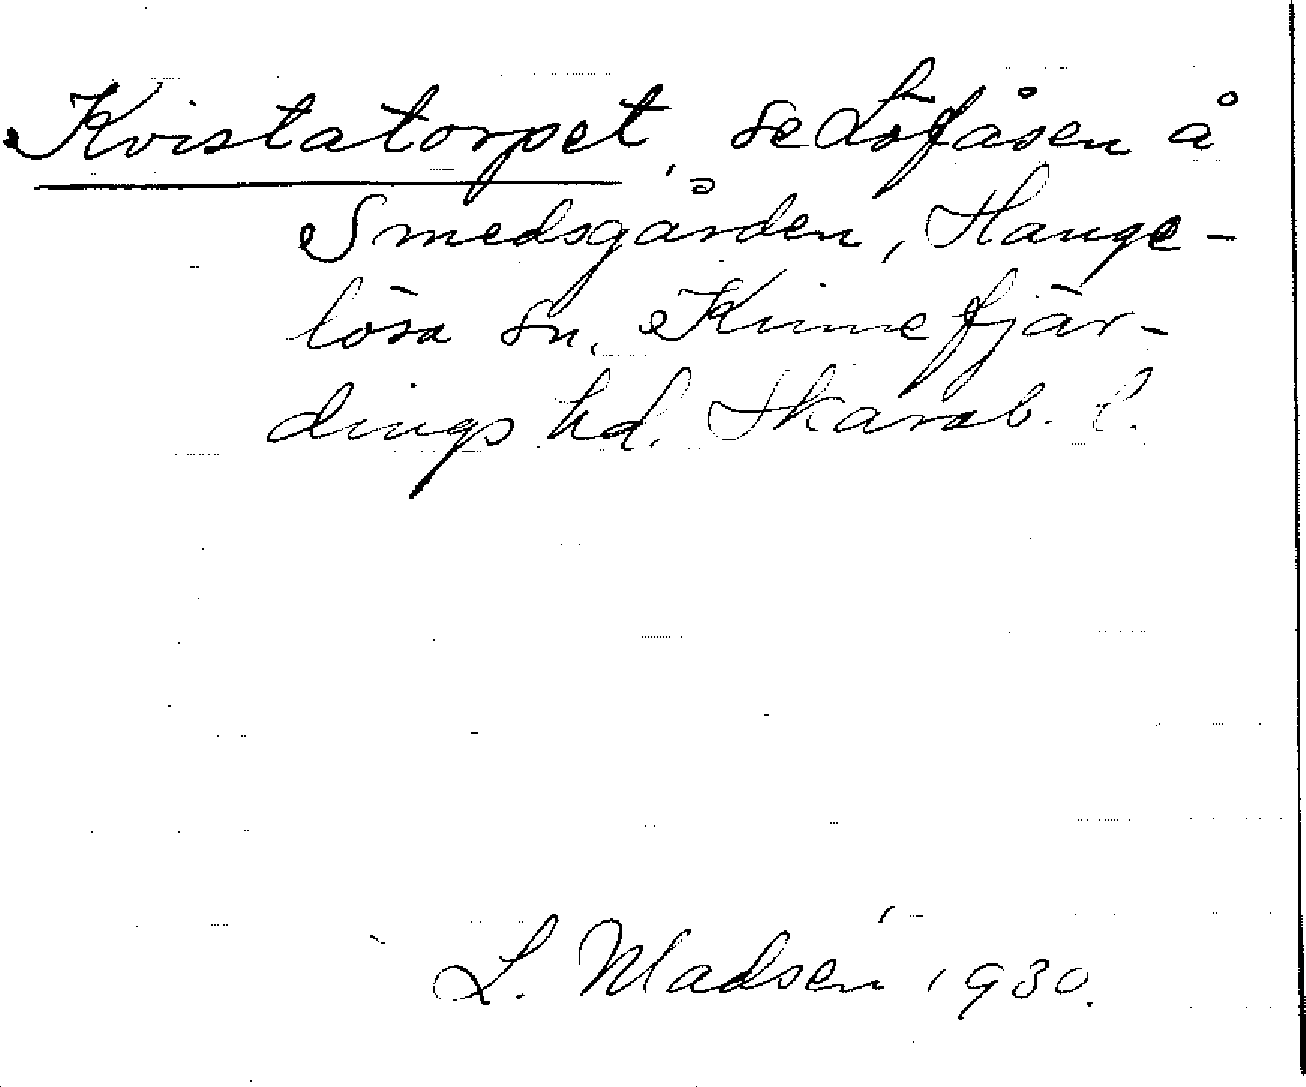 Kvistatorpet, se Löfåsen å
Smedsgården, Hange-
lösa sn, Kinnefjär-
dings hd. Skarab. l.
L. Madsén 1930.